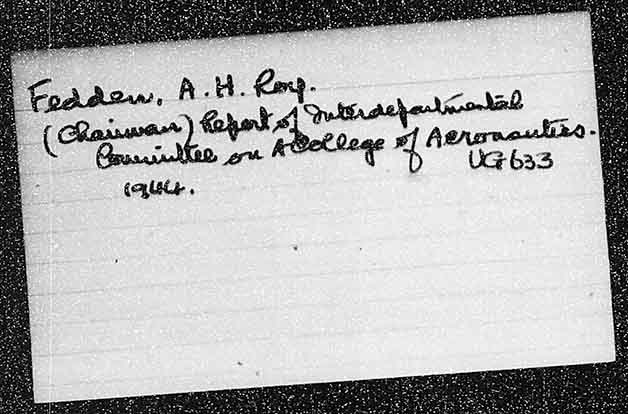 Fedden, A.H. Roy.
(Chairman) Report of Interdepartmental
Committee on A College of Aeronautics.
UG633
1944.